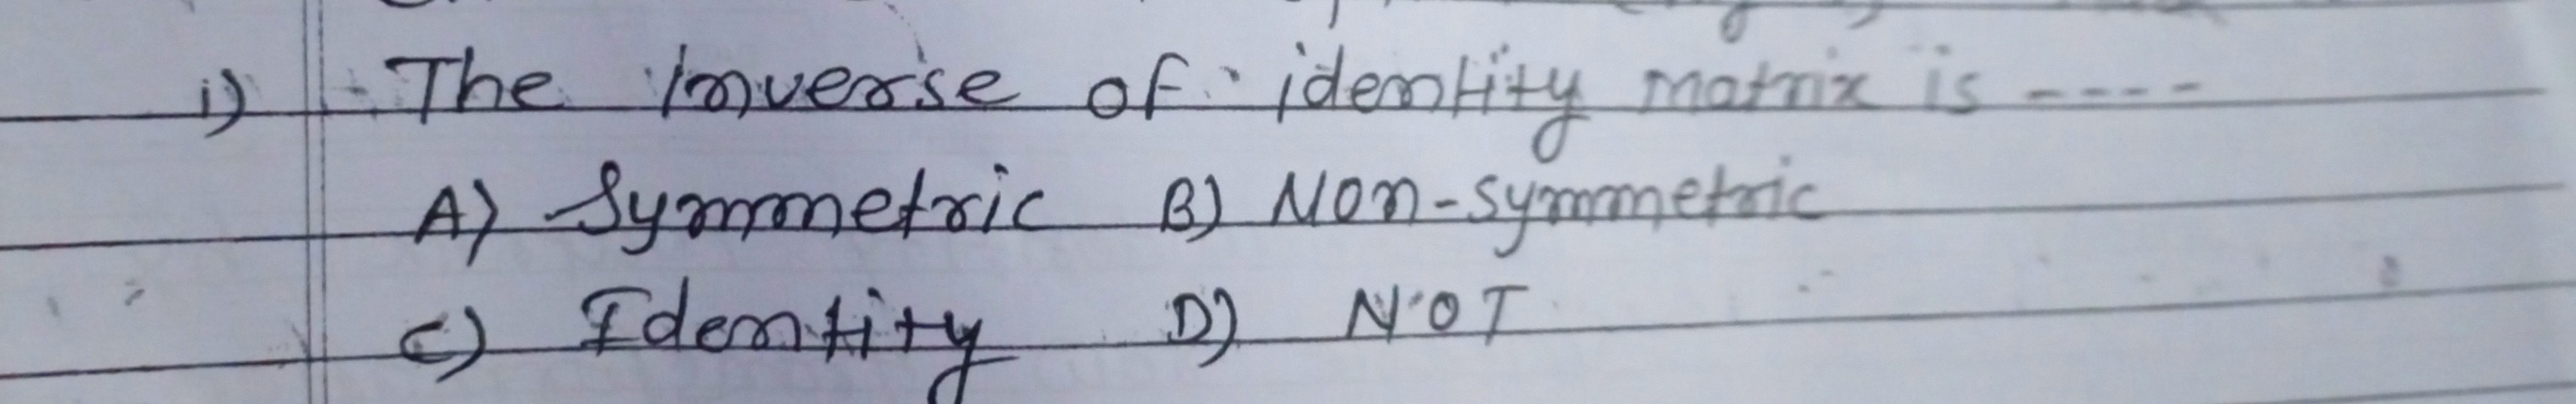 i) The Inverse of identity matrix is ----
A) Symmetric B) Non-symmetric
C) Identity D) NOT